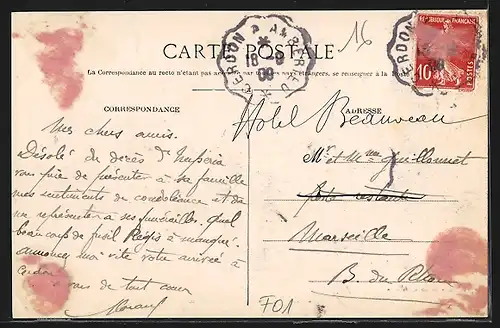 CARTE POSTALE
La Correspondance au recto n'est pas acceptée par tous les pays étrangers, se renseigner à la Poste
CERDON A AMBÉRIEU
18 -9
09
16
RÉPUBLIQUE FRANÇAISE
10
POSTES
CERDON
CORRESPONDANCE
ADRESSE
Mes chers amis.
Désolé du décès d'Impéria
vous prie de présenter à sa famille
mes sentiments de condoléance et de
me représenter à ses funérailles. Quel
beaucoup de fusil Régis à manqué.
annoncez moi vite votre arrivée à
Cerdon
à vous de tout cœur
Hotel Beauveau
Mr et Mme Guillonnet
poste restante
Marseille
B. du Rhône
F01